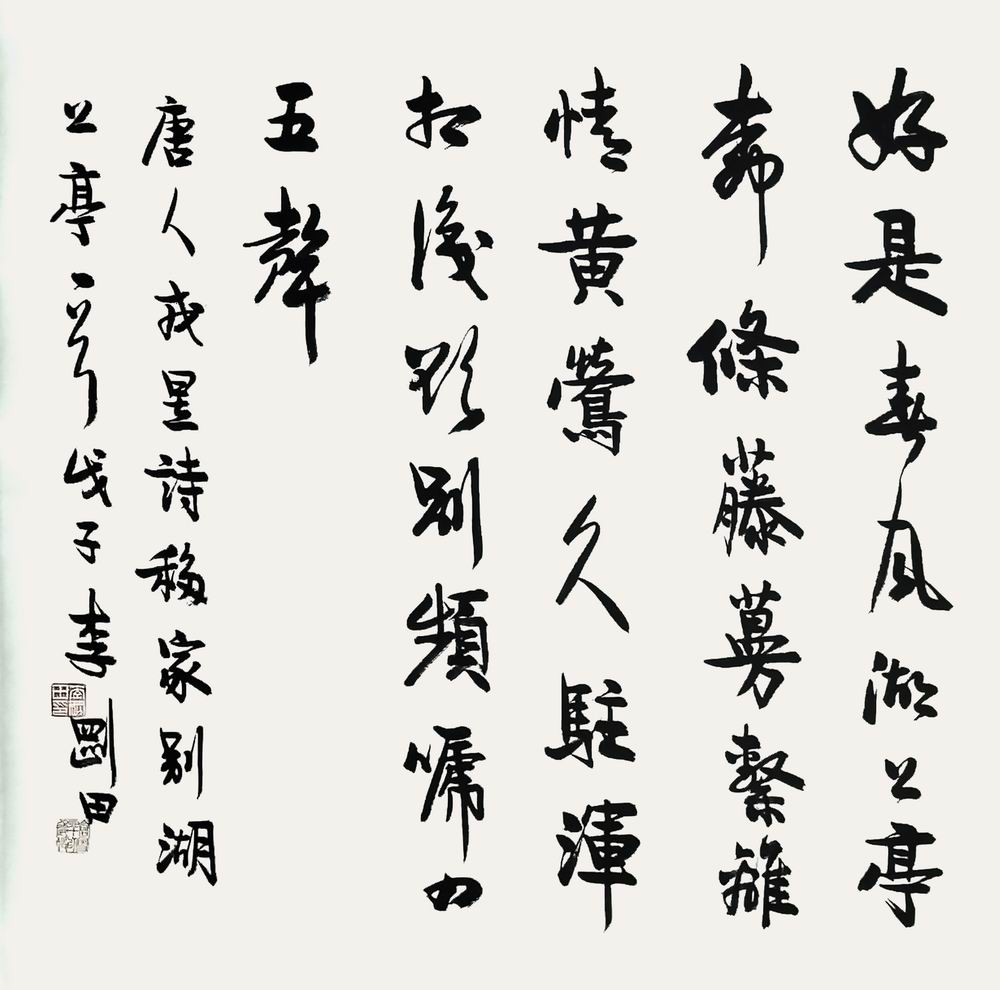 好是春風湖上亭
柳條藤蔓繫離
情黄鶯久駐渾
相識欲別頻嗁四
五聲
唐人戎昱詩移家别湖
上亭一首戊子李剛田